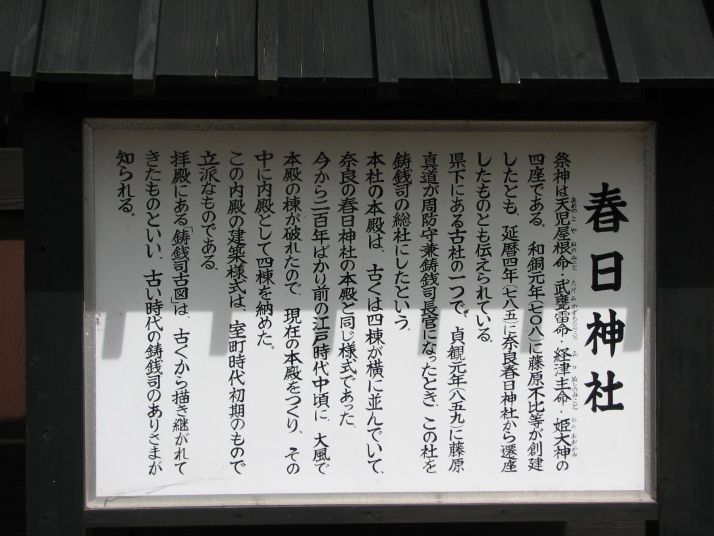 春日神社
祭神は天児屋根命・武甕雷命・経津主命・姫大神の
四座である。和銅元年(七〇八)に藤原不比等が創建
したとも、延暦四年(七八五)に奈良春日神社から遷座
したものとも伝えられている。
県下にある古社の一つで、貞観元年(八五九)に藤原
真道が周防守兼鋳銭司長官になったとき、この社を
鋳銭司の総社にしたという。
本社の本殿は、古くは四棟が横に並んでいて、
奈良の春日神社の本殿と同じ様式であった。
今から二百年ばかり前の江戸時代中頃に、大風で
本殿の棟が破れたので、現在の本殿をつくり、その
中に内殿として四棟を納めた。
この内殿の建築様式は、室町時代初期のもので
立派なものである。
拝殿にある「鋳銭司古図」は、古くから描き継がれて
きたものといい、古い時代の鋳銭司のありさまが
知られる。